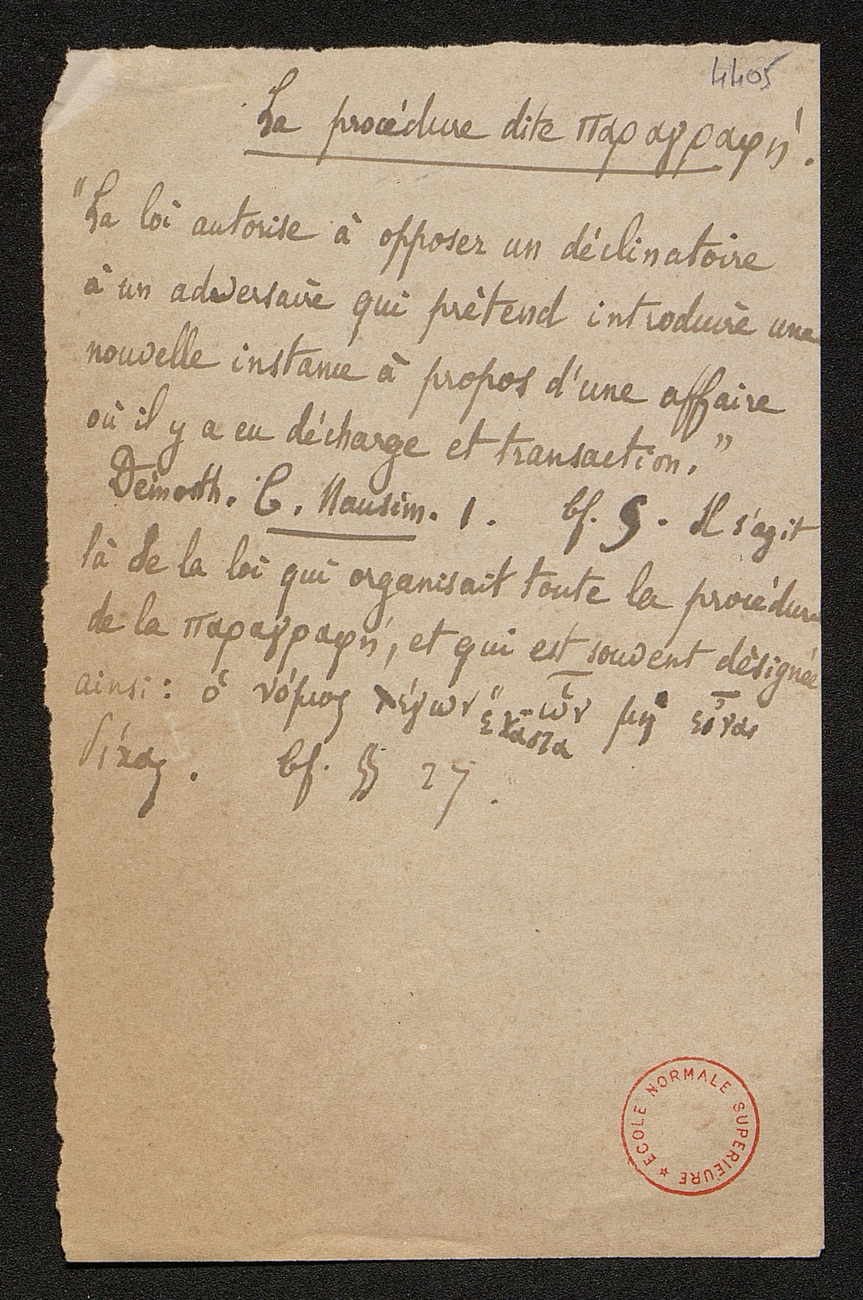 4405
La procédure dite παραγραφή.
"La loi autorise à opposer un déclinatoire
à un adversaire qui prétend introduire une
nouvelle instance à propos d'une affaire
où il y a eu décharge et transaction."
Démosth. C. Nausim. 1. Cf. 5. Il s'agit
là de la loi qui organisait toute la procédure
de la παραγραφή, et qui est souvent désignée
ainsi: ὁ νόμος λέγων ἕκαστα ὧν μὴ εἶναι
δίκας. Cf. §§ 27.
ECOLE NORMALE SUPERIEURE